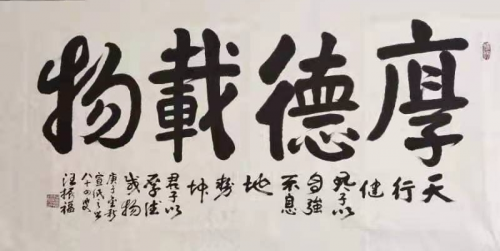 厚德載物
天行
健
君子以
自強
不息
地
勢
坤
君子以
厚德
載物
庚子
八十四叟
汪振福